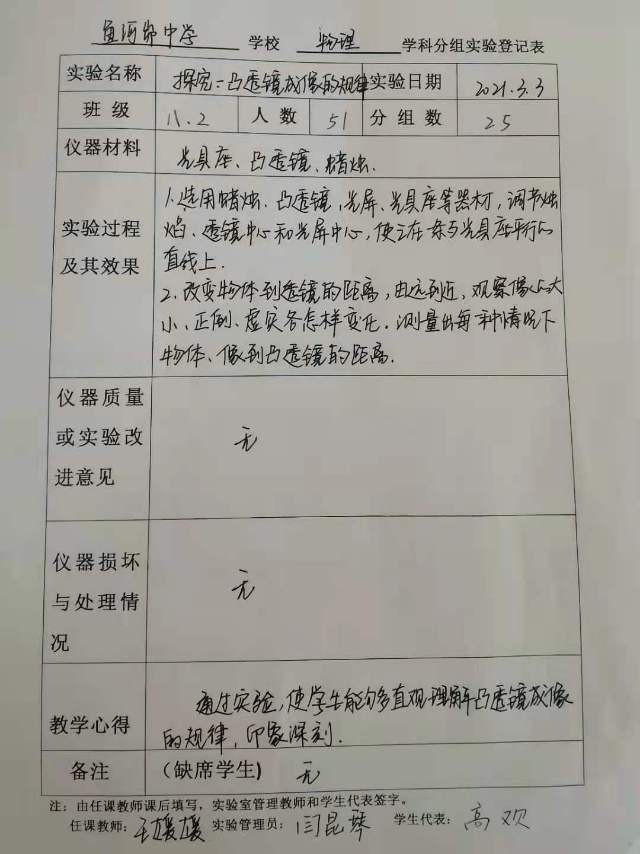 鱼河堡中学 学校 物理 学科分组实验登记表
实验名称 探究：凸透镜成像的规律 实验日期 2021.3.3
班 级 八.2 人 数 51 分 组 数 25
仪器材料 光具座、凸透镜、蜡烛.
实验过程及其效果
1.选用蜡烛、凸透镜,光屏、光具座等器材,调节烛
焰、透镜中心和光屏中心,使三在条与光具座平行的
直线上.
2.改变物体到透镜的距离,由远到近,观察像的大
小、正倒、虚实各怎样变化.测量出每种情况下
物体、像到凸透镜的距离.
仪器质量
或实验改
进意见
无
仪器损坏
与处理情
况
无
教学心得
通过实验,使学生能够多直观理解凸透镜成像
的规律,印象深刻.
备注 (缺席学生) 无
注：由任课教师课后填写，实验室管理教师和学生代表签字。
任课教师: 王媛媛 实验管理员: 闫昆琴 学生代表: 高欢